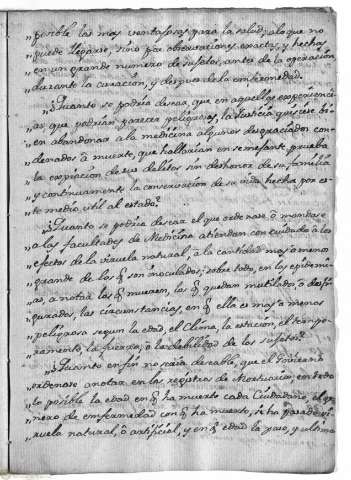 „posible las mas ventajosas para la salud; a lo que no
„puede llegarse, sino por observaciones exactas, y hechas
„en un grande numero de sujetos, antes de la operación
„durante la curacion, y despues de la enfermedad.
„¿Quanto se podria desear, que en aquellas experienci-
„as, que podrian parecer peligrosas, la Justicia quisiese bi-
„en abandonar a la medicina algunos desgraciados con-
„denados à muerte, que hallarian en semejante prueba
„la expiacion de sus delitos sin deshonor de su familia
„y continuamente la conservacion de su vida hecha por es-
„te medio util al estado?
„¿Quanto se podria desear el que ordenase, ò mandase
„a las facultades de Medicina atiendan con cuidado à los
„efectos de la viruela natural, à la cantidad mas ò menos
„grande de los q̃ son inoculados; sobre todo, en las epidemi-
„as, a notar los q̃ mueren, los q̃ quedan mutilados, ò desfi-
„gurados, las circunstancias, en q̃ ella es mas ò menos
„peligrosa segun la edad, el Clima, la estacion, el tempe-
„ramento, la fuerza, ò la debilidad de los sujetos?
„¿Quanto enfin no seria deseable, que el Soverano
„ordenase anotar en los registros de Mortuorio, en todo
„lo posible la edad en q̃ ha muerto cada Ciudadano, el ge-
„nero de enfermedad con q̃ ha muerto, si ha pasado vi-
„ruela natural, ò artificial, y en q̃ edad la paso, y ultima